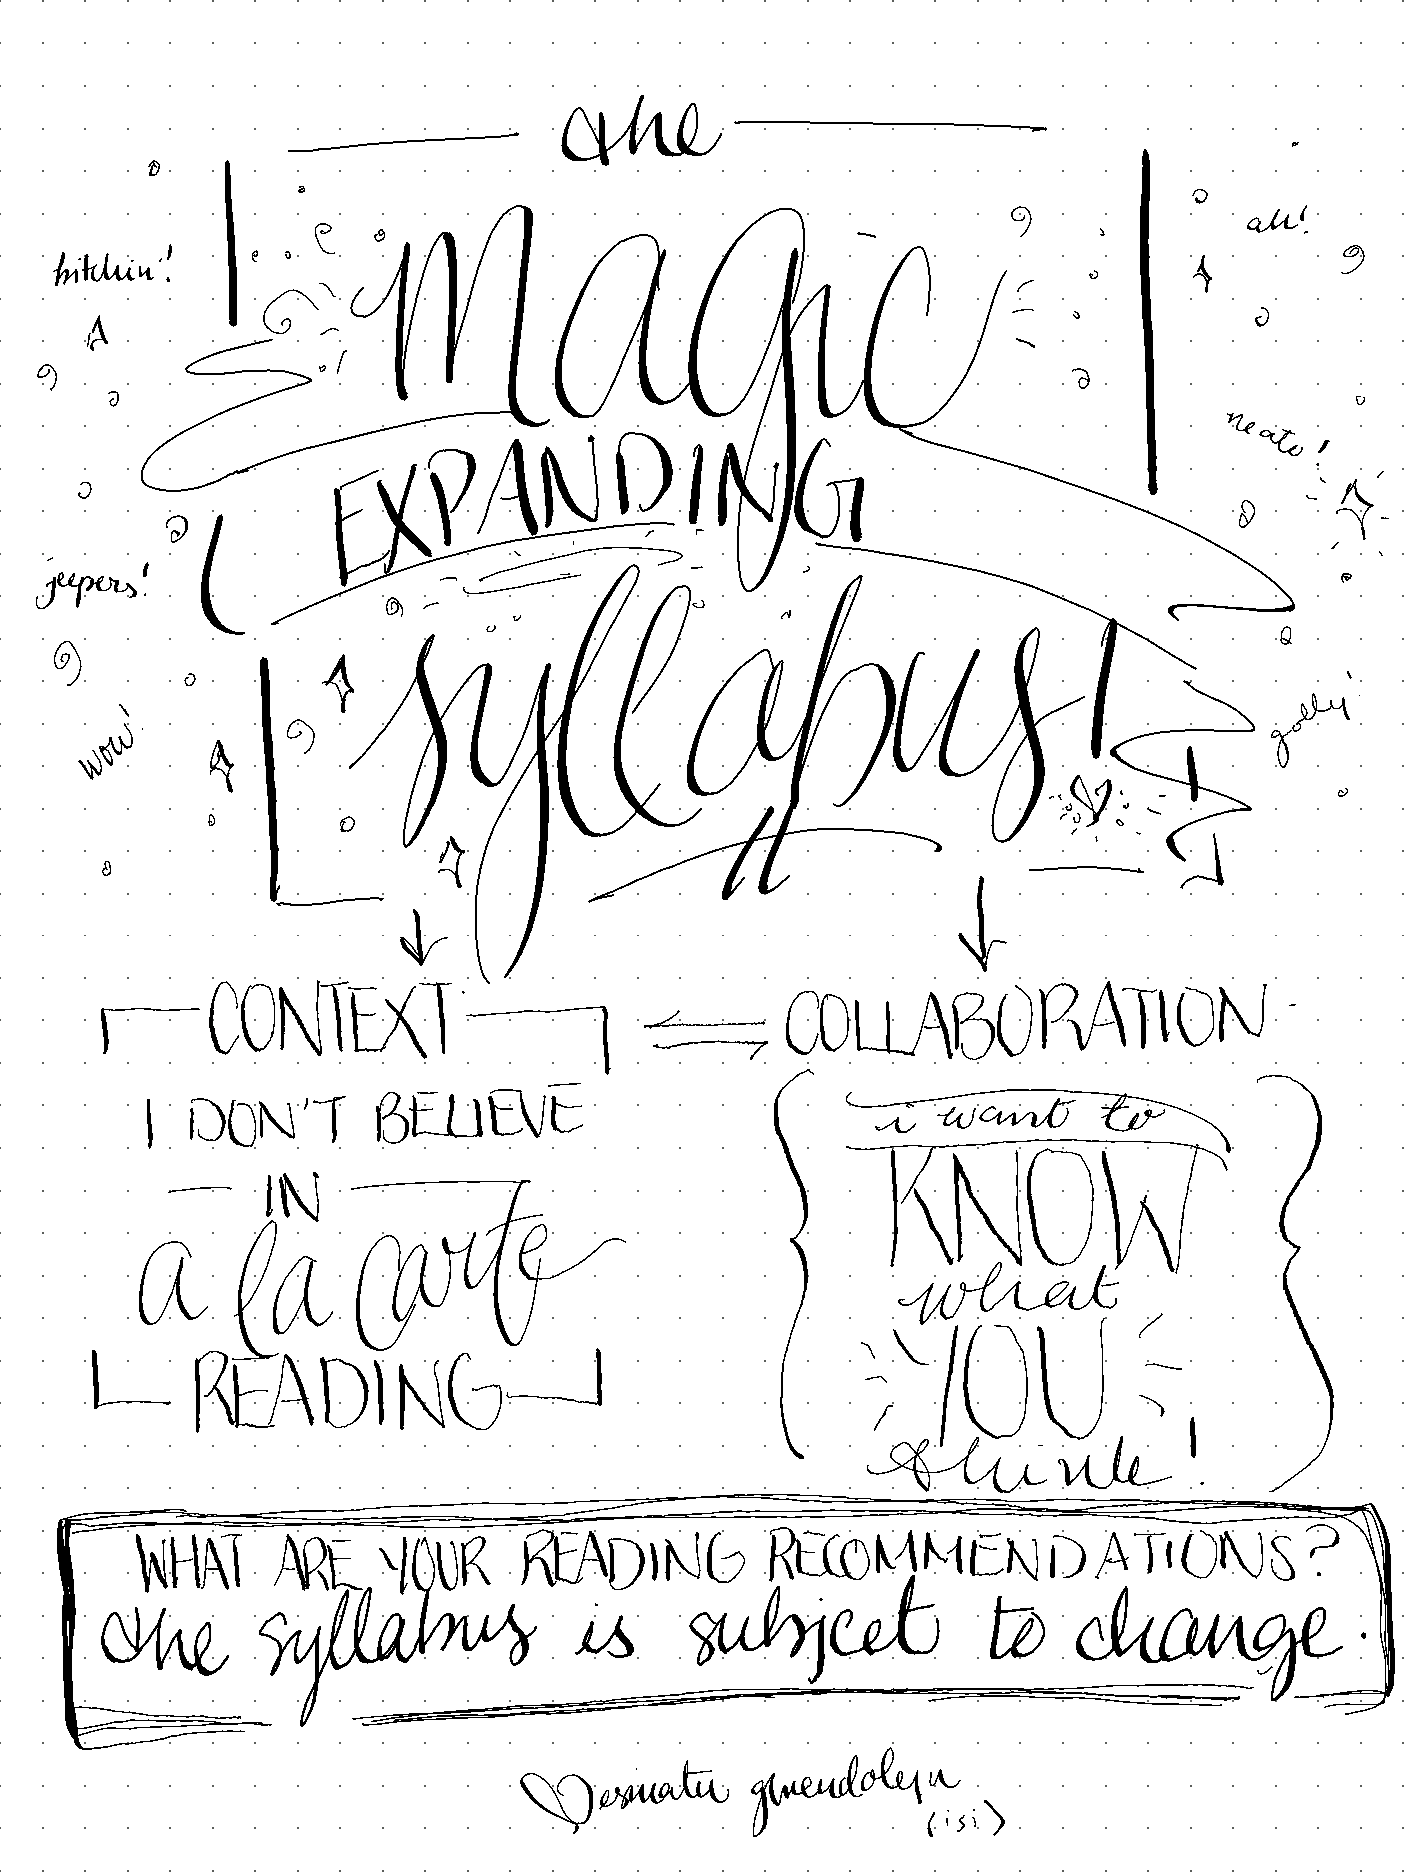 the
magic
EXPANDING
syllabus!
bitchin'!
jeepers!
wow!
ah!
neato!
golly!
CONTEXT
I DON'T BELIEVE
IN
a la carte
READING
COLLABORATION
i want to
KNOW
what
YOU
think!
WHAT ARE YOUR READING RECOMMENDATIONS?
the syllabus is subject to change.
gwendolyn
(isi)